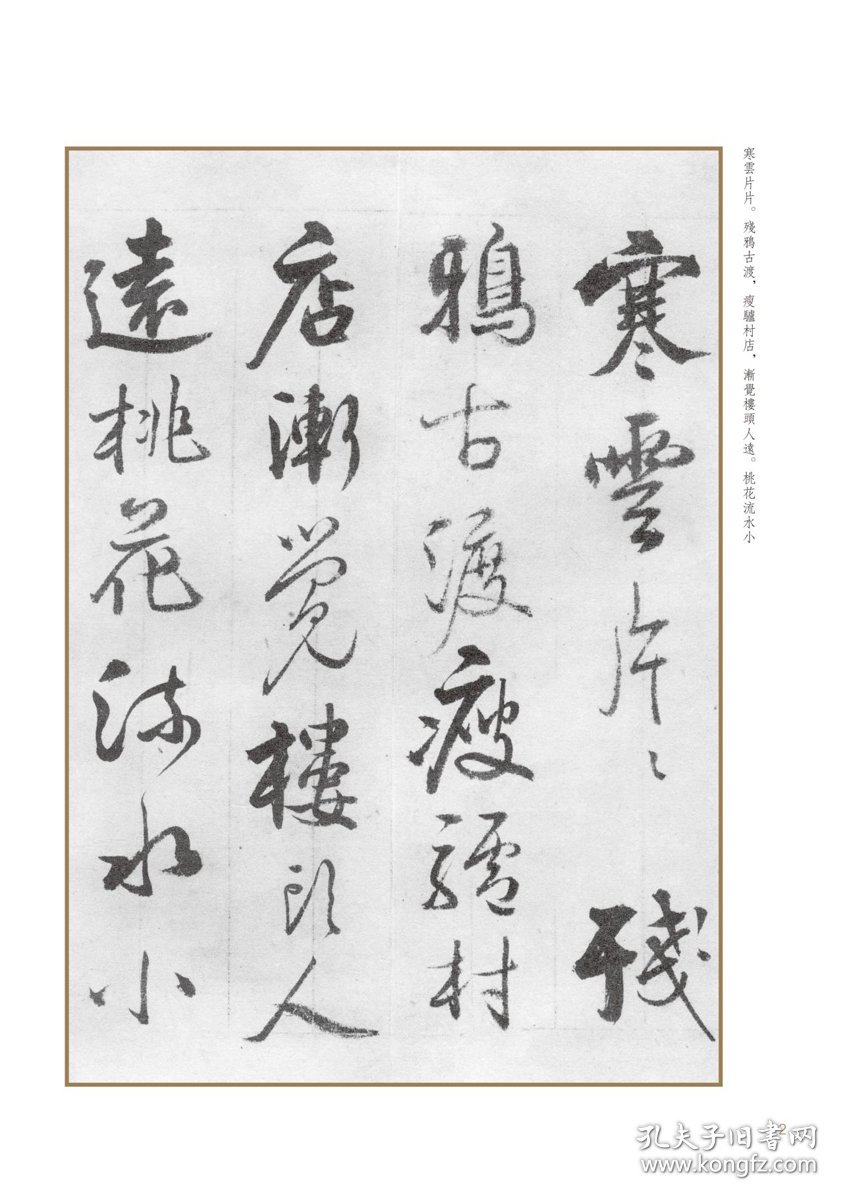 寒雲片〻殘
鴉古渡瘦驢村
店漸覺樓頭人
遠桃花流水小
寒雲片片。殘鴉古渡，瘦驢村店，漸覺樓頭人遠。桃花流水小
2
孔夫子旧書网
www.kongfz.com